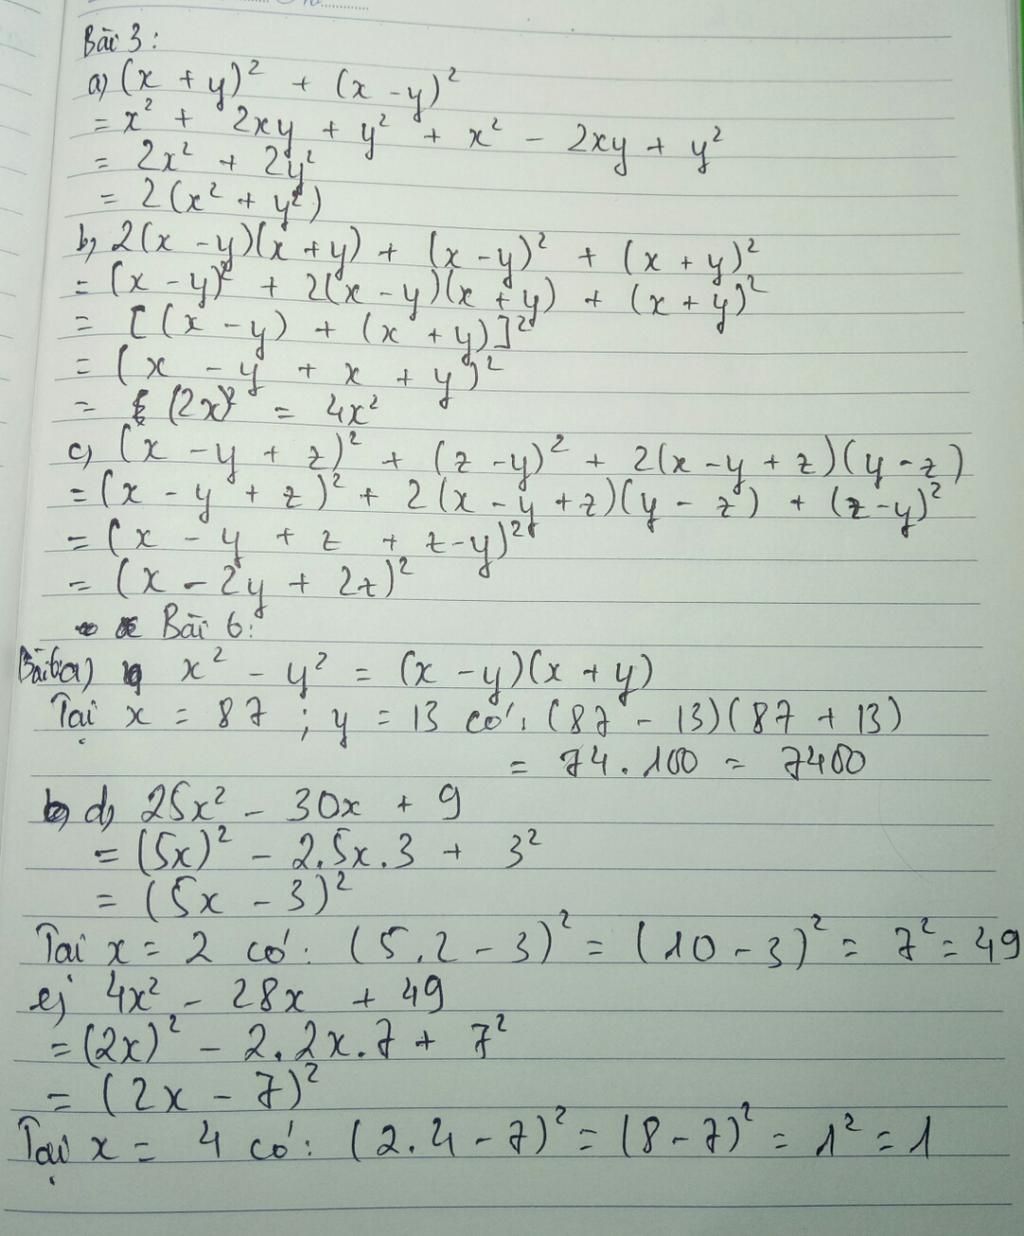 Bài 3:
a) (x + y)² + (x - y)²
= x² + 2xy + y² + x² - 2xy + y²
= 2x² + 2y²
= 2(x² + y²)
b) 2(x - y)(x + y) + (x - y)² + (x + y)²
= (x - y)² + 2(x - y)(x + y) + (x + y)²
= [(x - y) + (x + y)]²
= (x - y + x + y)²
= (2x)² = 4x²
c) (x - y + z)² + (z - y)² + 2(x - y + z)(y - z)
= (x - y + z)² + 2(x - y + z)(y - z) + (z - y)²
= (x - y + z + z - y)²
= (x - 2y + 2z)²
Bài 6:
Bài 6a) x² - y² = (x - y)(x + y)
Tại x = 87 ; y = 13 có: (87 - 13)(87 + 13)
= 74.100 = 7400
d) 25x² - 30x + 9
= (5x)² - 2.5x.3 + 3²
= (5x - 3)²
Tại x = 2 có: (5.2 - 3)² = (10 - 3)² = 7² = 49
e) 4x² - 28x + 49
= (2x)² - 2.2x.7 + 7²
= (2x - 7)²
Tại x = 4 có: (2.4 - 7)² = (8 - 7)² = 1² = 1